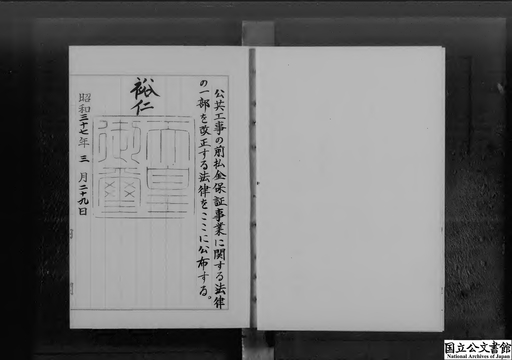 公共工事の前払金保証事業に関する法律
の一部を改正する法律をここに公布する。
裕仁
天皇
御璽
昭和三十七年三月二十九日
国立公文書館
National Archives of Japan